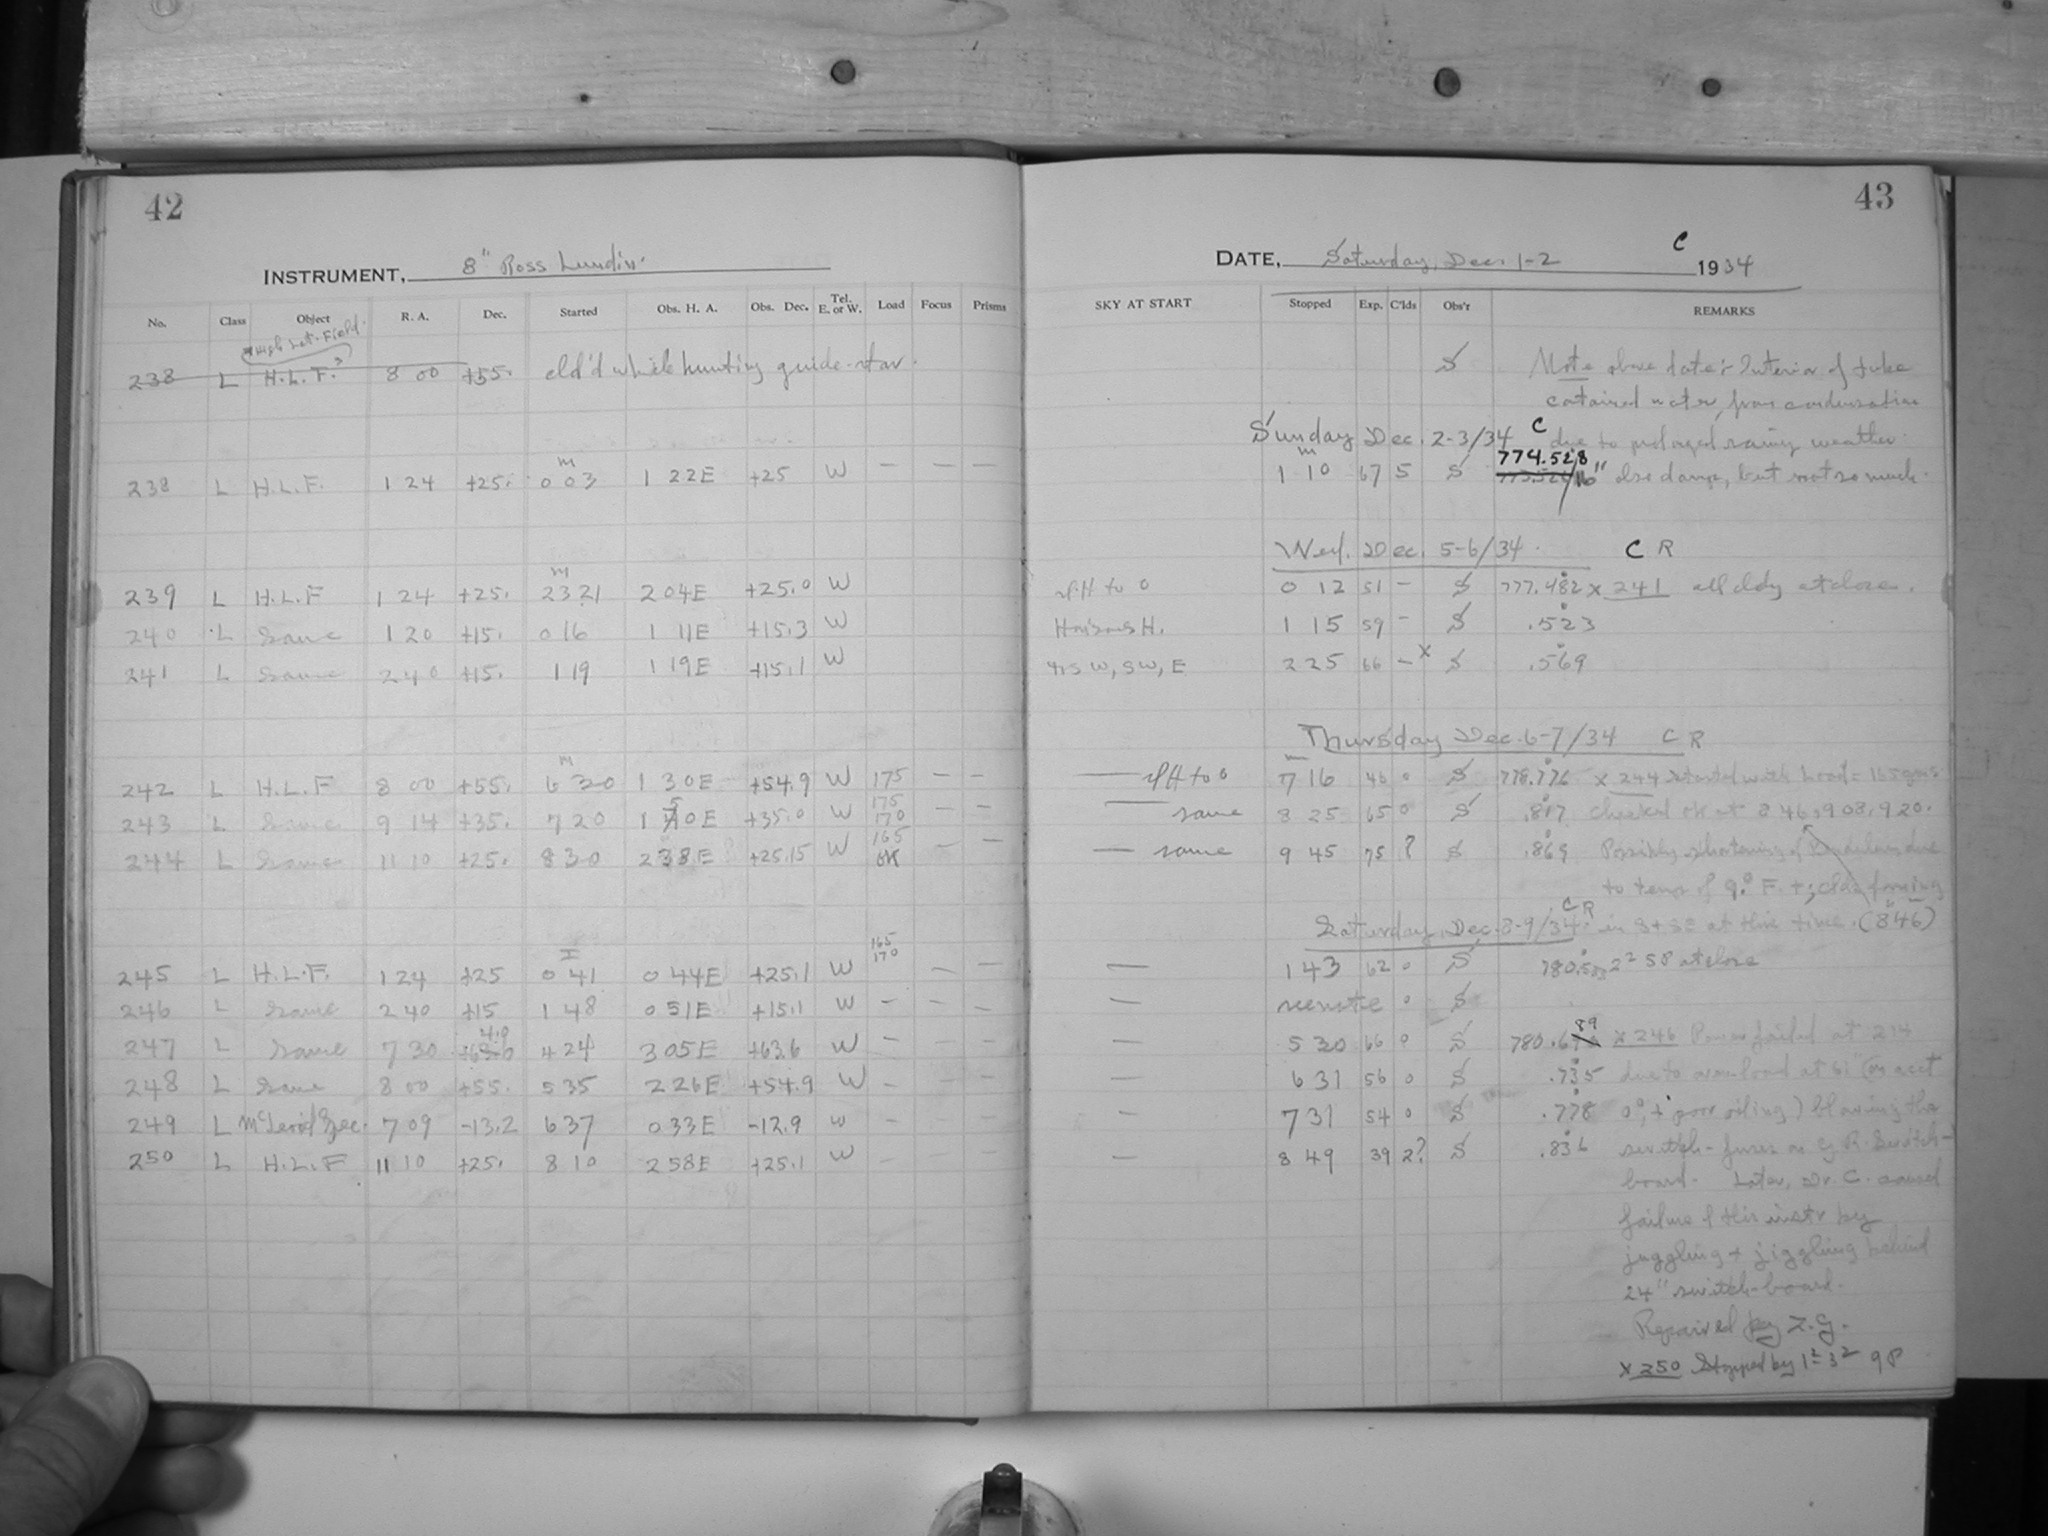 42
INSTRUMENT, 8" Ross Lundin
No. Class Object R. A. Dec. Started Obs. H. A. Obs. Dec. Tel. E. or W. Load Focus Prisms
"High Lat. Field"
238 L H.L.F. 8 00 +55. cld'd while hunting guide-star.
238 L H.L.F. 1 24 +25. m 0 03 1 22E +25 W — — —
239 L H.L.F 1 24 +25. m 23 21 2 04E +25.0 W
240 L Same 1 20 +15. 0 16 1 11E +15.3 W
241 L Same 2 40 +15. 1 19 1 19E +15.1 W
242 L H.L.F 8 00 +55. m 6 30 1 30E +54.9 W 175 — —
243 L Same 9 14 +35. 7 20 1 50E +35.0 W 175 170 — —
244 L Same 11 10 +25. 8 30 2 38E +25.15 W 165 OK — —
245 L H.L.F. 1 24 +25 0 41 0 44E +25.1 W 165 170 — —
246 L Same 2 40 +15 1 48 0 51E +15.1 W — — —
247 L Same 7 30 4 24 3 05E +63.6 W — — —
248 L Same 8 00 +55. 5 35 2 26E +54.9 W — — —
249 L 7 09 -13.2 6 37 0 33E -12.9 W — — —
250 L H.L.F 11 10 +25. 8 10 2 58E +25.1 W — — —
43
DATE, Saturday, Dec. 1-2 C 1934
SKY AT START Stopped Exp. C'lds Obs'r REMARKS
S Note above date: Interior of tube
contained water, from condensation
Sunday Dec. 2-3/34 C due to prolonged rainy weather.
m 1 10 67 5 S 774.528 16" also damp, but not so much.
Wed. Dec. 5-6/34. C R
to 0 0 12 51 — S 777.482 x 241 all cldy at close.
H. 1 15 59 — S .523
W, SW, E 2 25 66 — x S .569
Thursday Dec. 6-7/34 C R
— to 0 7 16 46 0 S 778.776 x 244 started with Load = 165 gms
— same 8 25 65 0 S .817 Checked OK at 8 46, 9 08, 9 20.
— same 9 45 75 ? S .869 Possibly shortening of Pendulum due
to temp of 9.° F. +; clds forming
Saturday, Dec. 8-9/34. C R in S + SE at this time. (8 46)
— 1 43 62 0 S 780. 58 at close
— see note 0 S
5 30 66 0 S 780.6 89 x 246 Power failed at 2 14
— 6 31 56 0 S .735 due to over-load at 61" (on acct
— 7 31 54 0 S .778 0°, + poor oiling) blowing the
— 8 49 39 2? S .836 switch-fuses on G R. Switch-
board. Later, Dr. C. caused
failure of this instr by
juggling + jiggling behind
24" switch-board.
Repaired by Z.G.
x 250 Stopped by